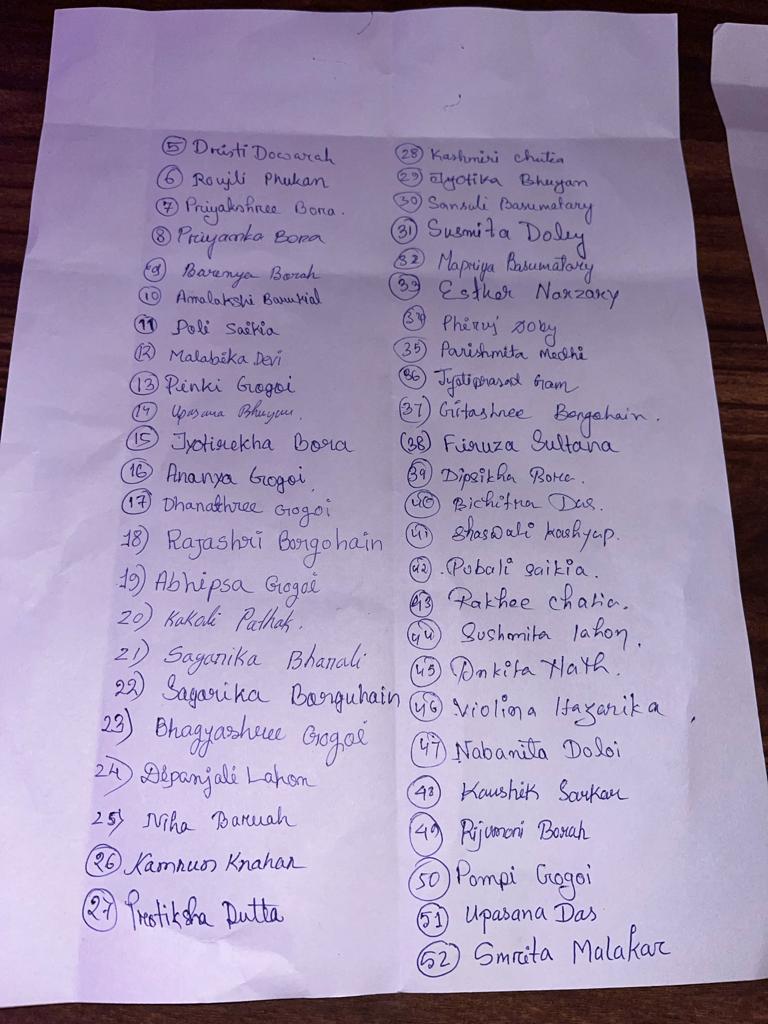 5 Dristi Dowarah
6 Roujli Phukan
7 Priyakshree Bora.
8 Priyanka Bora
9 Barenya Borah
10 Amalakshi Barukial
11 Poli Saikia
12 Malabika Devi
13 Pinki Gogoi
14 Upasana Bhuyan.
15 Jyotirekha Bora
16 Ananya Gogoi.
17 Dhanashree Gogoi
18) Rajashri Borgohain
19) Abhipsa Gogoi
20) Kakali Pathak.
21) Sagarika Bharali
22) Sagarika Borguhain
23) Bhagyashree Gogoi
24) Dipanjali Lahon
25) Niha Baruah
26 Kamrun Knahar
27 Pratiksha Dutta
28 Kashmiri Chutia
29 Jyotika Bhuyan
30 Sansuli Basumatary
31 Susmita Doley
32 Mapriya Basumatary
33 Esther Narzary
34 Phiruj
35 Parishmita Medhi
36 Jyotiprasad
37) Gitashree Borgohain.
(38) Firuza Sultana
39 Dipsikha Bora.
40 Bichitra Das.
41 Shaswati Kashyap.
42 Pubali Saikia.
43 Rakhee Chatia.
44 Sushmita Lahon.
45 Ankita Nath.
46 Violina Hazarika
47 Nabanita Doloi
48 Kaushik Sarkar
49 Rijumoni Borah
50 Pompi Gogoi
51 Upasana Das
52 Smrita Malakar